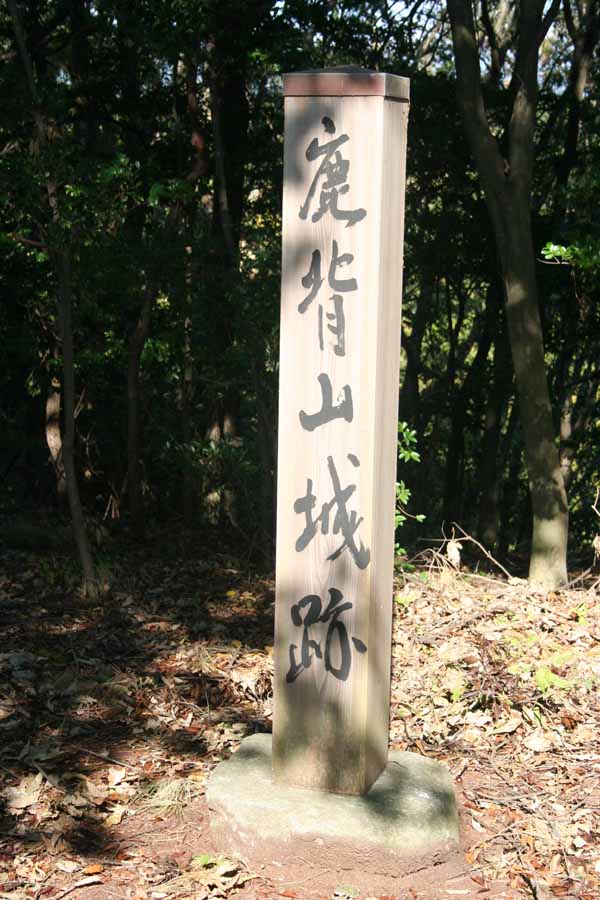 鹿背山城跡